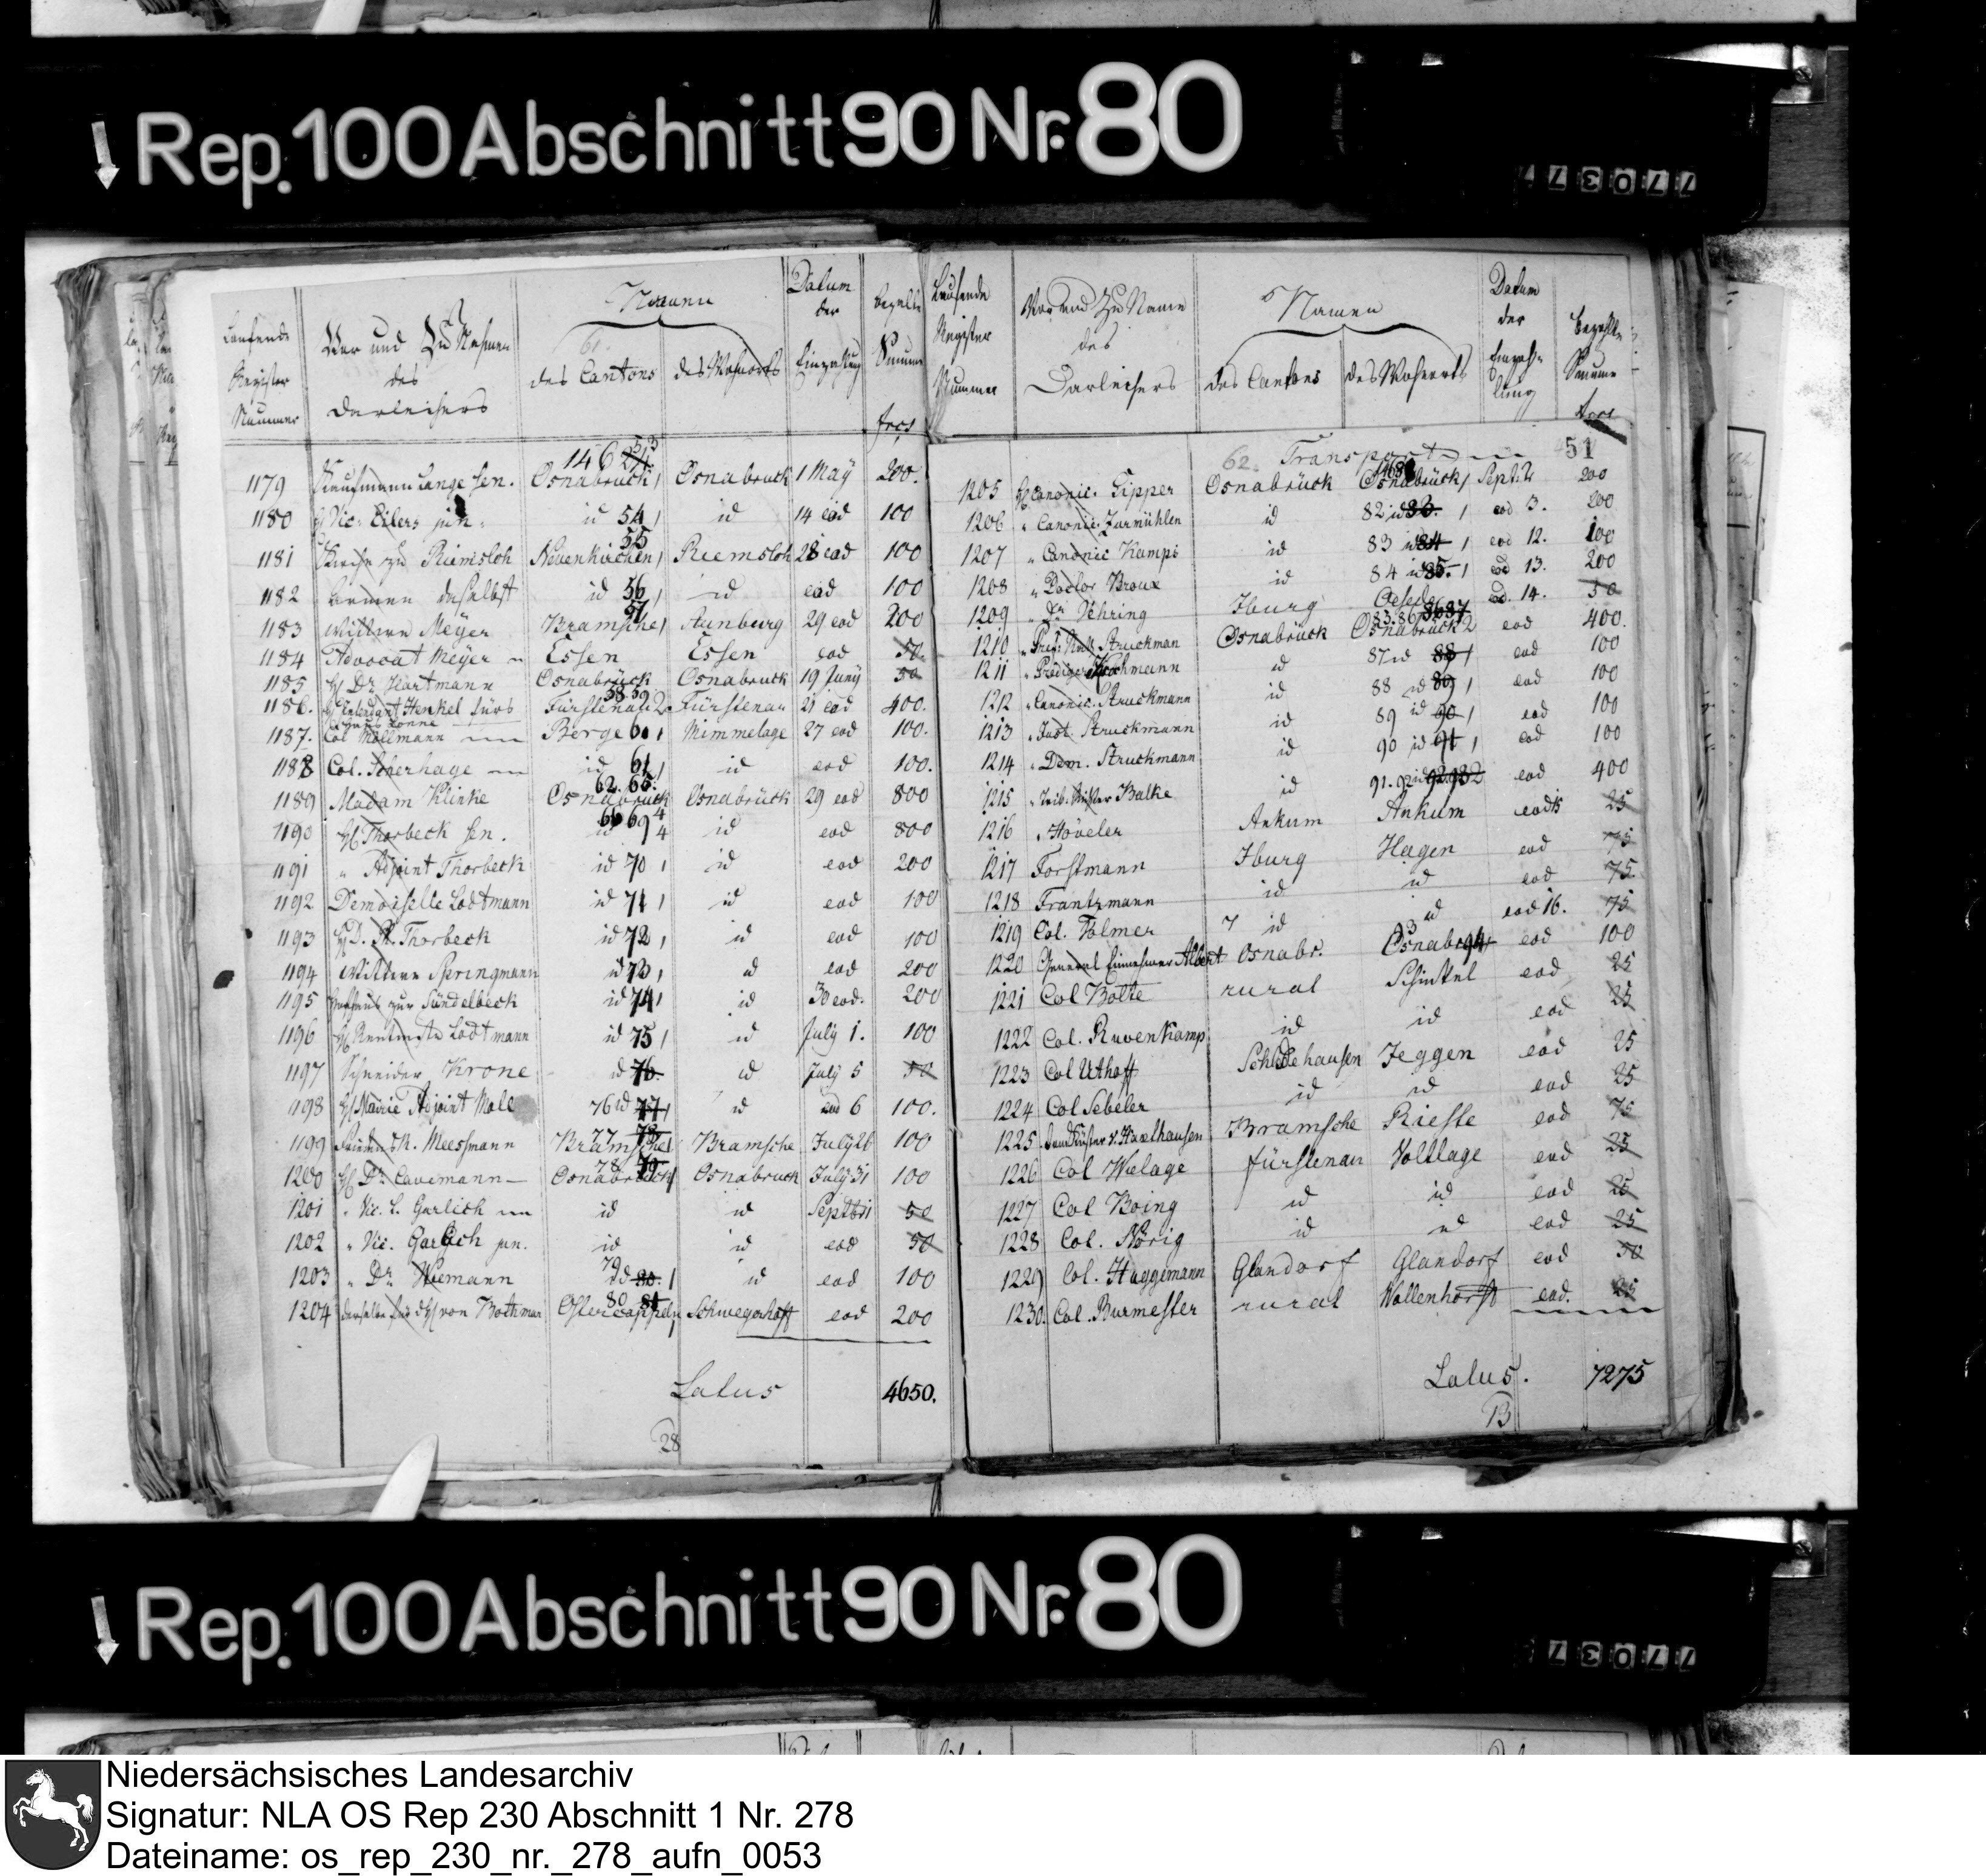 Rep. 100 Abschnitt 90 Nr. 80
77037
Laufende Register Nummer | Vor und Zu Nahmen des Darleihers | Namen des Cantons | des Wohnorts | Datum der Einzahlung | bezalte Summe frcs
61.
146 53
1179 Kaufmann Lange sen. Osnabruck 1 Osnabruck 1 May 200.
1180 H Vic. Eilers jun. id 54 1 id 14 eod 100
55
1181 Kirche zu Riemsloh Neuenkirchen 1 Riemsloh 28 eod 100
1182 Armen daselbst id 56 1 id eod 100
57
1183 Wittwe Meyer Bramsche 1 29 eod 200
1184 Advocat Meyer Essen Essen eod 50.
1185 H Dr Hartmann Osnabrück Osnabruck 19 Juny 50
58.59
1186. H Intendant Henkel fürs Fürstenau 2 Fürstenau 21 eod 400.
1187. Col Möllmann Berge 60 1 Mimmelage 27 eod 100.
1188 Col. Scherhage id 61 1 id eod 100.
62. 65.
1189 Madam Klinke Osnabrück Osnabrück 29 eod 800
66 69 4
1190 H Thorbeck sen. id 4 id eod 800
1191 " Adjoint Thorbeck id 70 1 id eod 200
1192 Demoiselle Lodtmann id 71 1 id eod 100
1193 H D. R. Thorbeck id 72 1 id eod 100
1194 Wittwe Springmann id 73 1 id eod 200
1195 zur Sündelbeck id 74 1 id 30 eod. 200
1196 H Lodtmann id 75 1 id July 1. 100
1197 Schneider Krone id 76. id July 5 50
1198 H Mairie Adjoint Moll 76 id 77 1 id eod 6 100.
77 78
1199 Meessmann Bramsche 1 Bramsche July 26 100
78 79
1200 H Dr Cavemann Osnabrück 1 Osnabruck July 31 100
1201 " Vic. L. Garlich id id Septbr 1 50
1202 " Vic. Garlich jun. id id eod 50
79
1203 " Dr Niemann id 80. 1 id eod 100
80 81
1204 derselbe für d H von Bothmar Ostercappeln 1 Schwegerhoff eod 200
Latus 4650.
28
Laufende Register Nummer | Vor und Zu Name des Darleihers | Namen des Cantons | des Wohnorts | Datum der Einzahlung | Bezahlte Summe frcs
62. Transport 51
1205 H Canonic. Gipper Osnabrück Osnabrück 1 Septr 2 200
1206 " Canonic. Zurmühlen id 82 id 83. 1 eod 3. 200
1207 " Canonic Kamps id 83 id 84 1 eod 12. 100
1208 " Doctor Broux id 84 id 85. 1 eod 13. 200
1209 " Dr Vehring Iburg Oesede eod. 14. 50
85.86 86 87
1210 " Struckman Osnabrück Osnabrück 2 eod 400.
1211 " Prediger Kochmann id 87 id 88 1 eod 100
1212 " Canonic. Struckmann id 88 id 89 1 eod 100
1213 " Just. Struckmann id 89 id 90 1 eod 100
1214 " Dem. Struckmann id 90 id 91 1 eod 100
1215 " Trib. Richter Balke id 91.92 id 92.93 2 eod 400
1216 " Höveler Ankum Ankum eod 15 25
1217 Forstmann Iburg Hagen eod 75
1218 Frantzmann id id eod 75
1219 Col. Volmer id id eod 16. 75
93
1220 General Einnehmer Albert Osnabr. Osnabr. 94 1 eod 100
1221 Col Bolte rural Schinkel eod 25
1222 Col. Ruvenkamp id id eod 25
1223 Col Uthoff Schledehausen Jeggen eod 25
1224 Col Sebeler id id eod 25
1225 Domküster v. Haxthausen Bramsche Rieste eod 75
1226 Col Wielage Fürstenau Voltlage eod 25
1227 Col Boing id id eod 25
1228 Col. Nörig id id eod 25
1229 Col. Haggemann Glandorf Glandorf eod 50
1230. Col. Burmester rural Wallenhorst eod. 25
Latus. 7275
B
Rep. 100 Abschnitt 90 Nr. 80
77037
Niedersächsisches Landesarchiv
Signatur: NLA OS Rep 230 Abschnitt 1 Nr. 278
Dateiname: os_rep_230_nr._278_aufn_0053